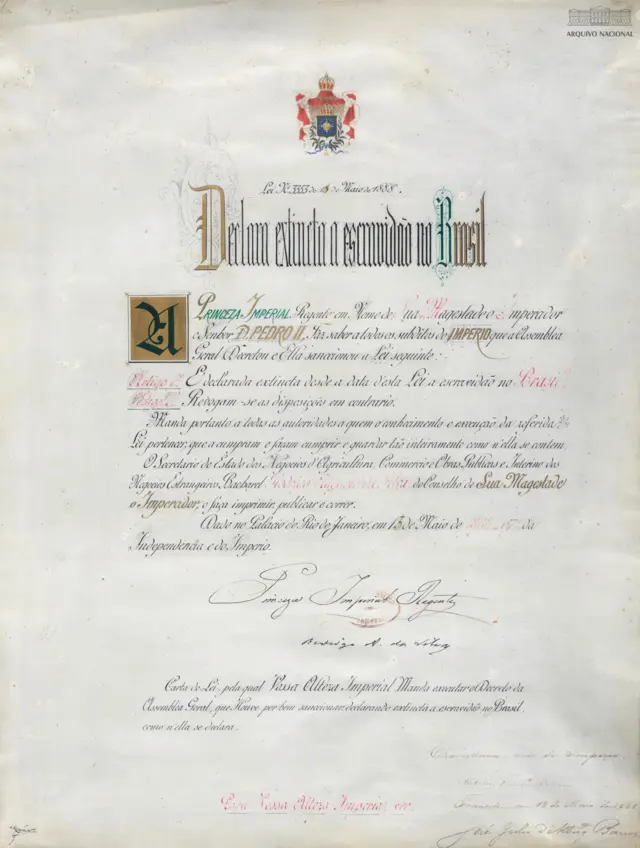 ARQUIVO NACIONAL
Lei Nº 3353 de 13 de Maio de 1888.
Declara extincta a escravidão no Brasil
A PRINCEZA IMPERIAL Regente em Nome de Sua Magestade o Imperador
o Senhor D. PEDRO II, Faz saber a todos os subditos do IMPERIO que a Assembléa
Geral Decretou e Ella sanccionou a Lei seguinte:
Artigo 1º É declarada extincta desde a data d'esta Lei a escravidão no Brazil.
Artigo 2º Revogam-se as disposições em contrario.
Manda portanto a todas as autoridades a quem o conhecimento e execução da referida
Lei pertencer, que a cumpram e façam cumprir e guardar tão inteiramente como n'ella se contem.
O Secretario de Estado dos Negocios d'Agricultura, Commercio e Obras Publicas e Interino dos
Negocios Estrangeiros, Bacharel Rodrigo Augusto da Silva, do Conselho de Sua Magestade
o Imperador, o faça imprimir, publicar e correr.
Dado no Palacio do Rio de Janeiro, em 13 de Maio de da
Independencia e do Imperio.
Princeza Imperial Regente
Rodrigo A. da Silva
Carta de Lei, pela qual Vossa Alteza Imperial Manda executar o Decreto da
Assembléa Geral, que Houve por bem sanccionar, declarando extincta a escravidão no Brasil,
como n'ella se declara.
Para Vossa Alteza Imperial ver.
13 de Maio de 1888
José Julio d'Albuq Barros